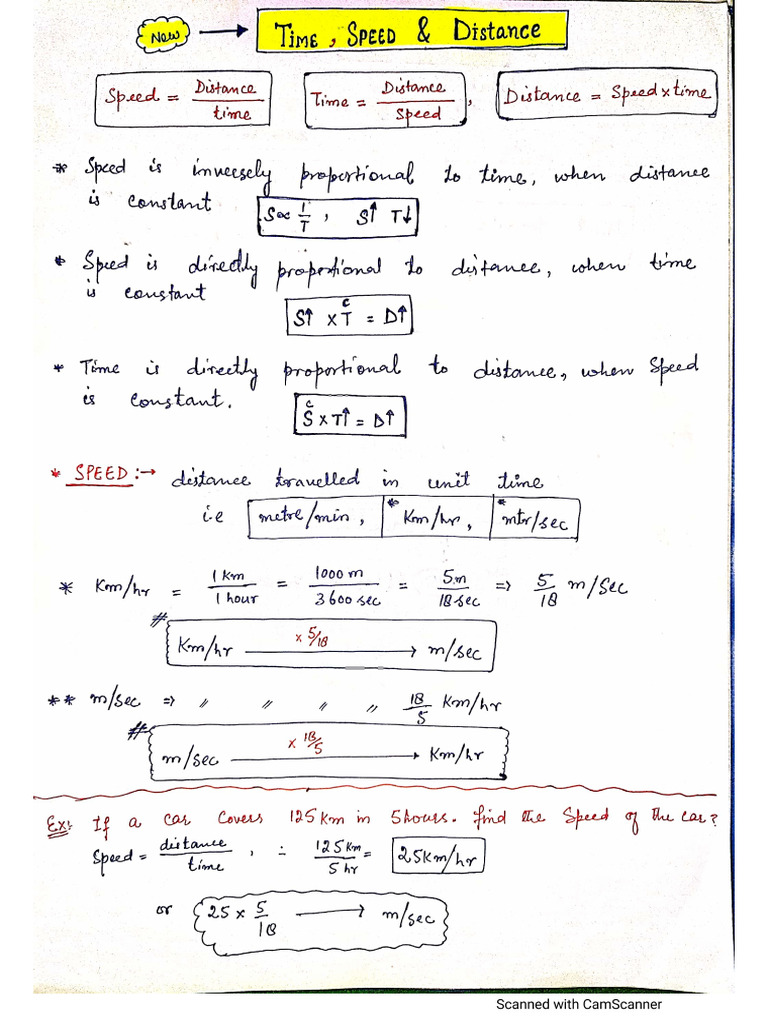 New → TIME, SPEED & Distance
Speed = Distance/time
Time = Distance/Speed,
Distance = Speed × time
* Speed is inversely proportional to time, when distance
is constant S ∝ 1/T, S↑ T↓
* Speed is directly proportional to distance, when time
is constant
S↑ × T^c = D↑
* Time is directly proportional to distance, when Speed
is constant.
S^c × T↑ = D↑
* SPEED :→ distance travelled in unit time
i.e metre/min, * Km/hr, * mtr/sec
* Km/hr = 1 Km/1 hour = 1000 m/3600 sec = 5m/18 sec ⇒ 5/18 m/Sec
# Km/hr × 5/18 → m/sec
** m/sec ⇒ 〃 〃 〃 〃 18/5 Km/hr
# m/sec × 18/5 → Km/hr
Ex: If a car covers 125 Km in 5 hours. find the Speed of the car?
Speed = distance/time, ∴ 125 Km/5 hr = 25 Km/hr
or 25 × 5/18 → m/sec
Scanned with CamScanner